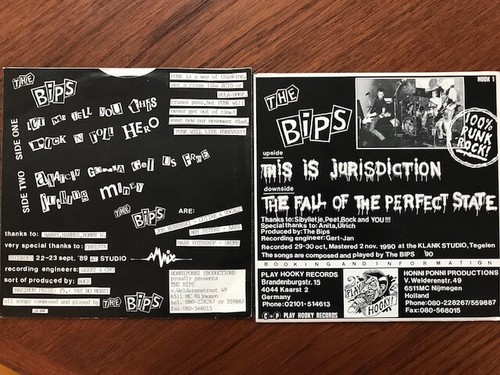 THE BiPS
SIDE ONE
LET ME TELL YOU THIS
ROCK N ROLL HERO
SIDE TWO
ANARCHY GONNA GET US FREE
FUCKING MICKY
PUNK is a way of thinking,
not a craze like ACID or
HULA-HOOP
crazes pass, but PUNK will
never get out of time!
even now our movement died
PUNK WILL LIVE FOREVER!!
THE BiPS ARE:
thanks to: HARRY, HANNES, RONNY W.
very special thanks to: CHRISTA
22-23 sept. '89 AT STUDIO
recording engineers:
sort of produced by:
MAXIMUM PRIZE: F5,- PAY NO MORE!
all songs composed and played by THE BiPS
HONNIPONNI PRODUCTIONS
proudly presents
THE BIPS
v.Welderenstraat 49
6511 MC Nijmegen
tel. 080-228267 or 559887
Fax 080-568015
HOOK 1
THE BiPS
100% PUNK ROCK!
upside
THIS IS JURISDICTION
downside
THE FALL OF THE PERFECT STATE
Thanks to: Sibylletje, Peet, Rock and YOU!!!
Special thanks to: Anita, Ulrich
Produced by: The Bips
Recording engineer: Gert-Jan
Recorded 29-30 oct, Mastered 2 nov. 1990 at the KLANK STUDIO, Tegelen
The songs are composed and played by The BIPS '90
BOOKING AND INFORMATION
PLAY HOOKY RECORDS
Brandenburgstr. 15
4044 Kaarst 2
Germany
Phone: 02101-514613
C+P PLAY HOOKY RECORDS
PLAY HOOKY!
HONNI PONNI PRODUCTIONS
V.Welderenstr. 49
6511MC Nijmegen
Holland
Phone: 080-228267/559887
Fax: 080-568015